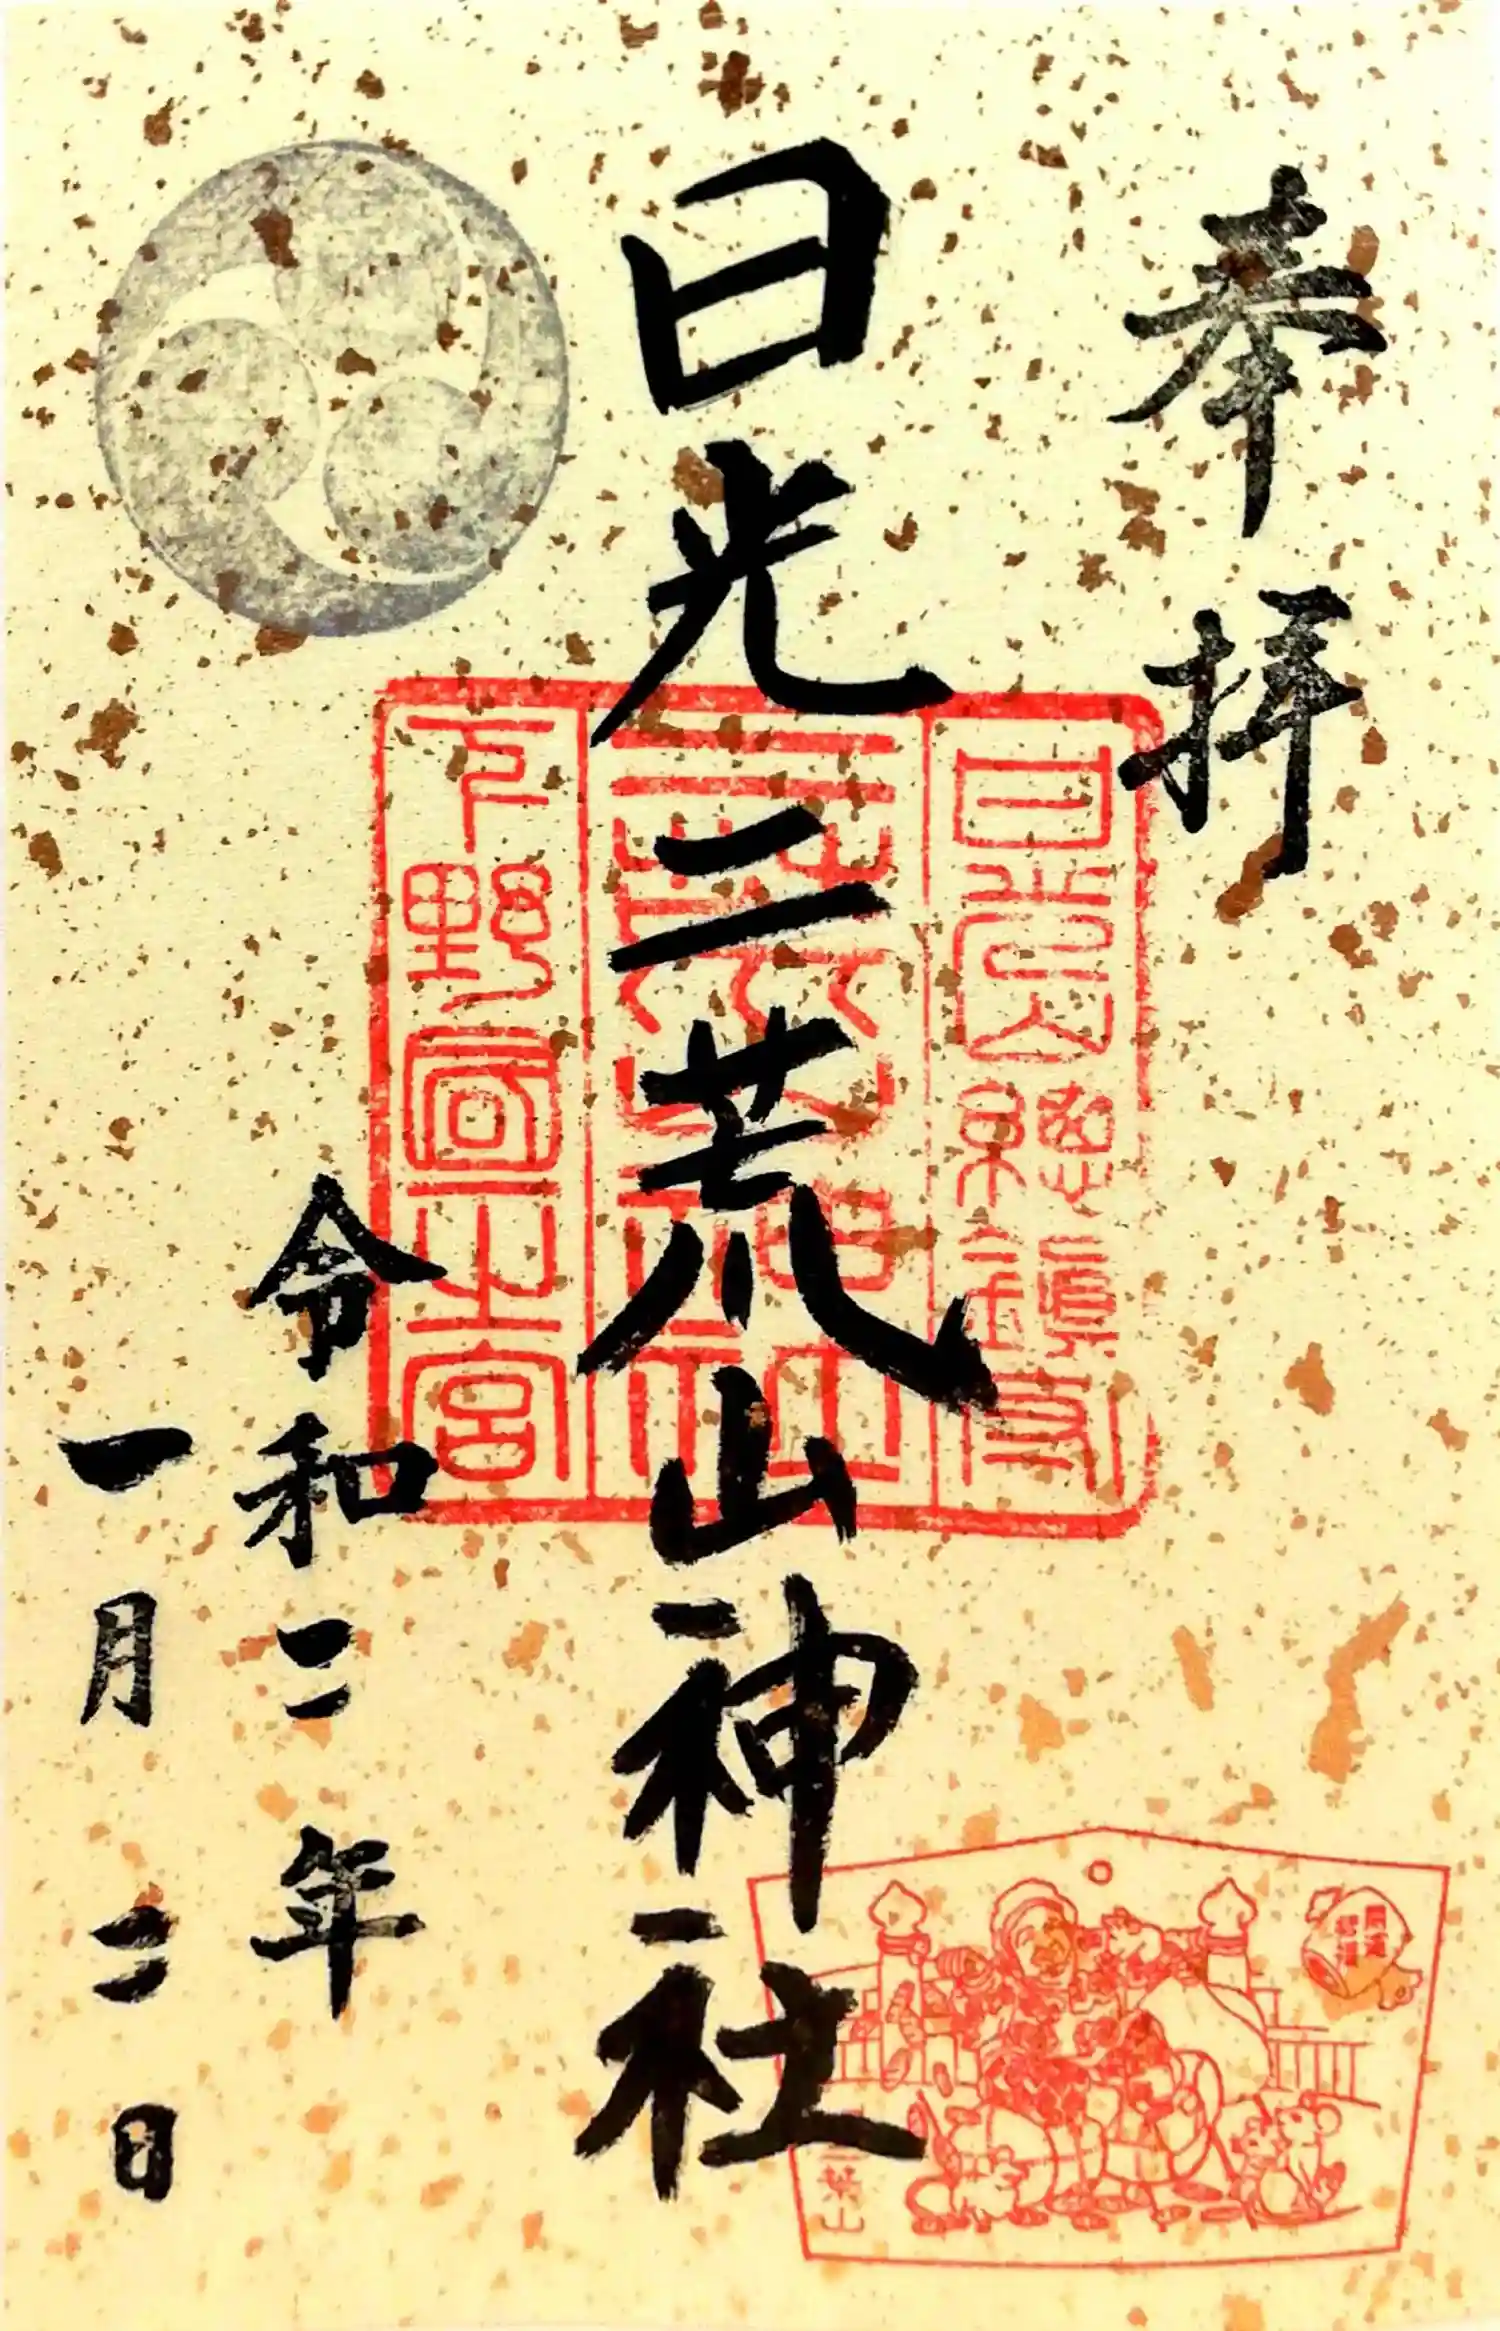 奉拝
日光二荒山神社
日光山總鎮守
二荒山神社
下野國一之宮
令和二年
一月二日